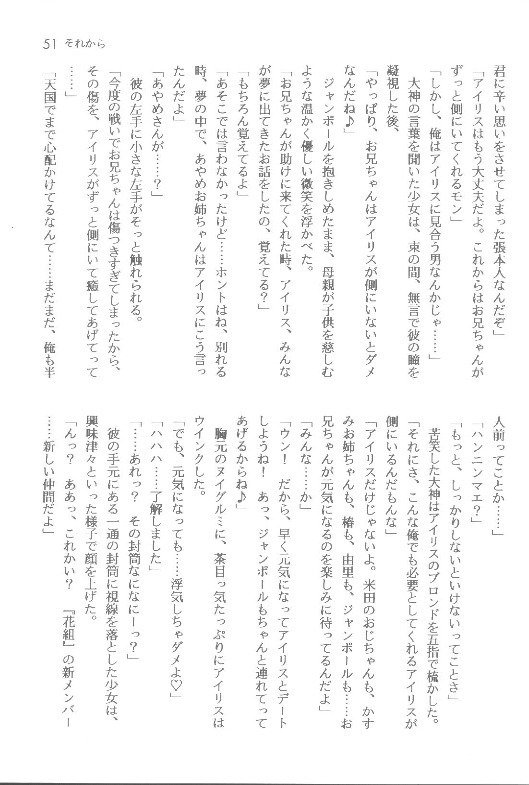 51 それから
君に辛い思いをさせてしまった張本人なんだぞ」
「アイリスはもう大丈夫だよ。これからはお兄ちゃんが
ずっと側にいてくれるモン」
「しかし、俺はアイリスに見合う男なんかじゃ……」
大神の言葉を聞いた少女は、束の間、無言で彼の瞳を
凝視した後、
「やっぱり、お兄ちゃんはアイリスが側にいないとダメ
なんだね♪」
ジャンポールを抱きしめたまま、母親が子供を慈しむ
ような温かく優しい微笑を浮かべた。
「お兄ちゃんが助けに来てくれた時、アイリス、みんな
が夢に出てきたお話をしたの、覚えてる?」
「もちろん覚えてるよ」
「あそこでは言わなかったけど……ホントはね、別れる
時、夢の中で、あやめお姉ちゃんはアイリスにこう言っ
たんだよ」
「あやめさんが……?」
彼の左手に小さな左手がそっと触れられる。
「今度の戦いでお兄ちゃんは傷つきすぎてしまったから、
その傷を、アイリスがずっと側にいて癒してあげてって
……」
「天国でまで心配かけてるなんて……まだまだ、俺も半
人前ってことか……」
「ハンニンマエ?」
「もっと、しっかりしないといけないってことさ」
苦笑した大神はアイリスのブロンドを五指で梳かした。
「それにさ、こんな俺でも必要としてくれるアイリスが
側にいるんだもんな」
「アイリスだけじゃないよ。米田のおじちゃんも、かす
みお姉ちゃんも、椿も、由里も、ジャンポールも……お
兄ちゃんが元気になるのを楽しみに待ってるんだよ」
「みんな……か」
「ウン! だから、早く元気になってアイリスとデート
しようね! あっ、ジャンポールもちゃんと連れてって
あげるからね♪」
胸元のヌイグルミに、茶目っ気たっぷりにアイリスは
ウインクした。
「でも、元気になっても……浮気しちゃダメよ♡」
「ハハハ……了解しました」
「……あれっ? その封筒なになにーっ?」
彼の手元にある一通の封筒に視線を落とした少女は、
興味津々といった様子で顔を上げた。
「んっ? ああっ、これかい? 『花組』の新メンバー
……新しい仲間だよ」